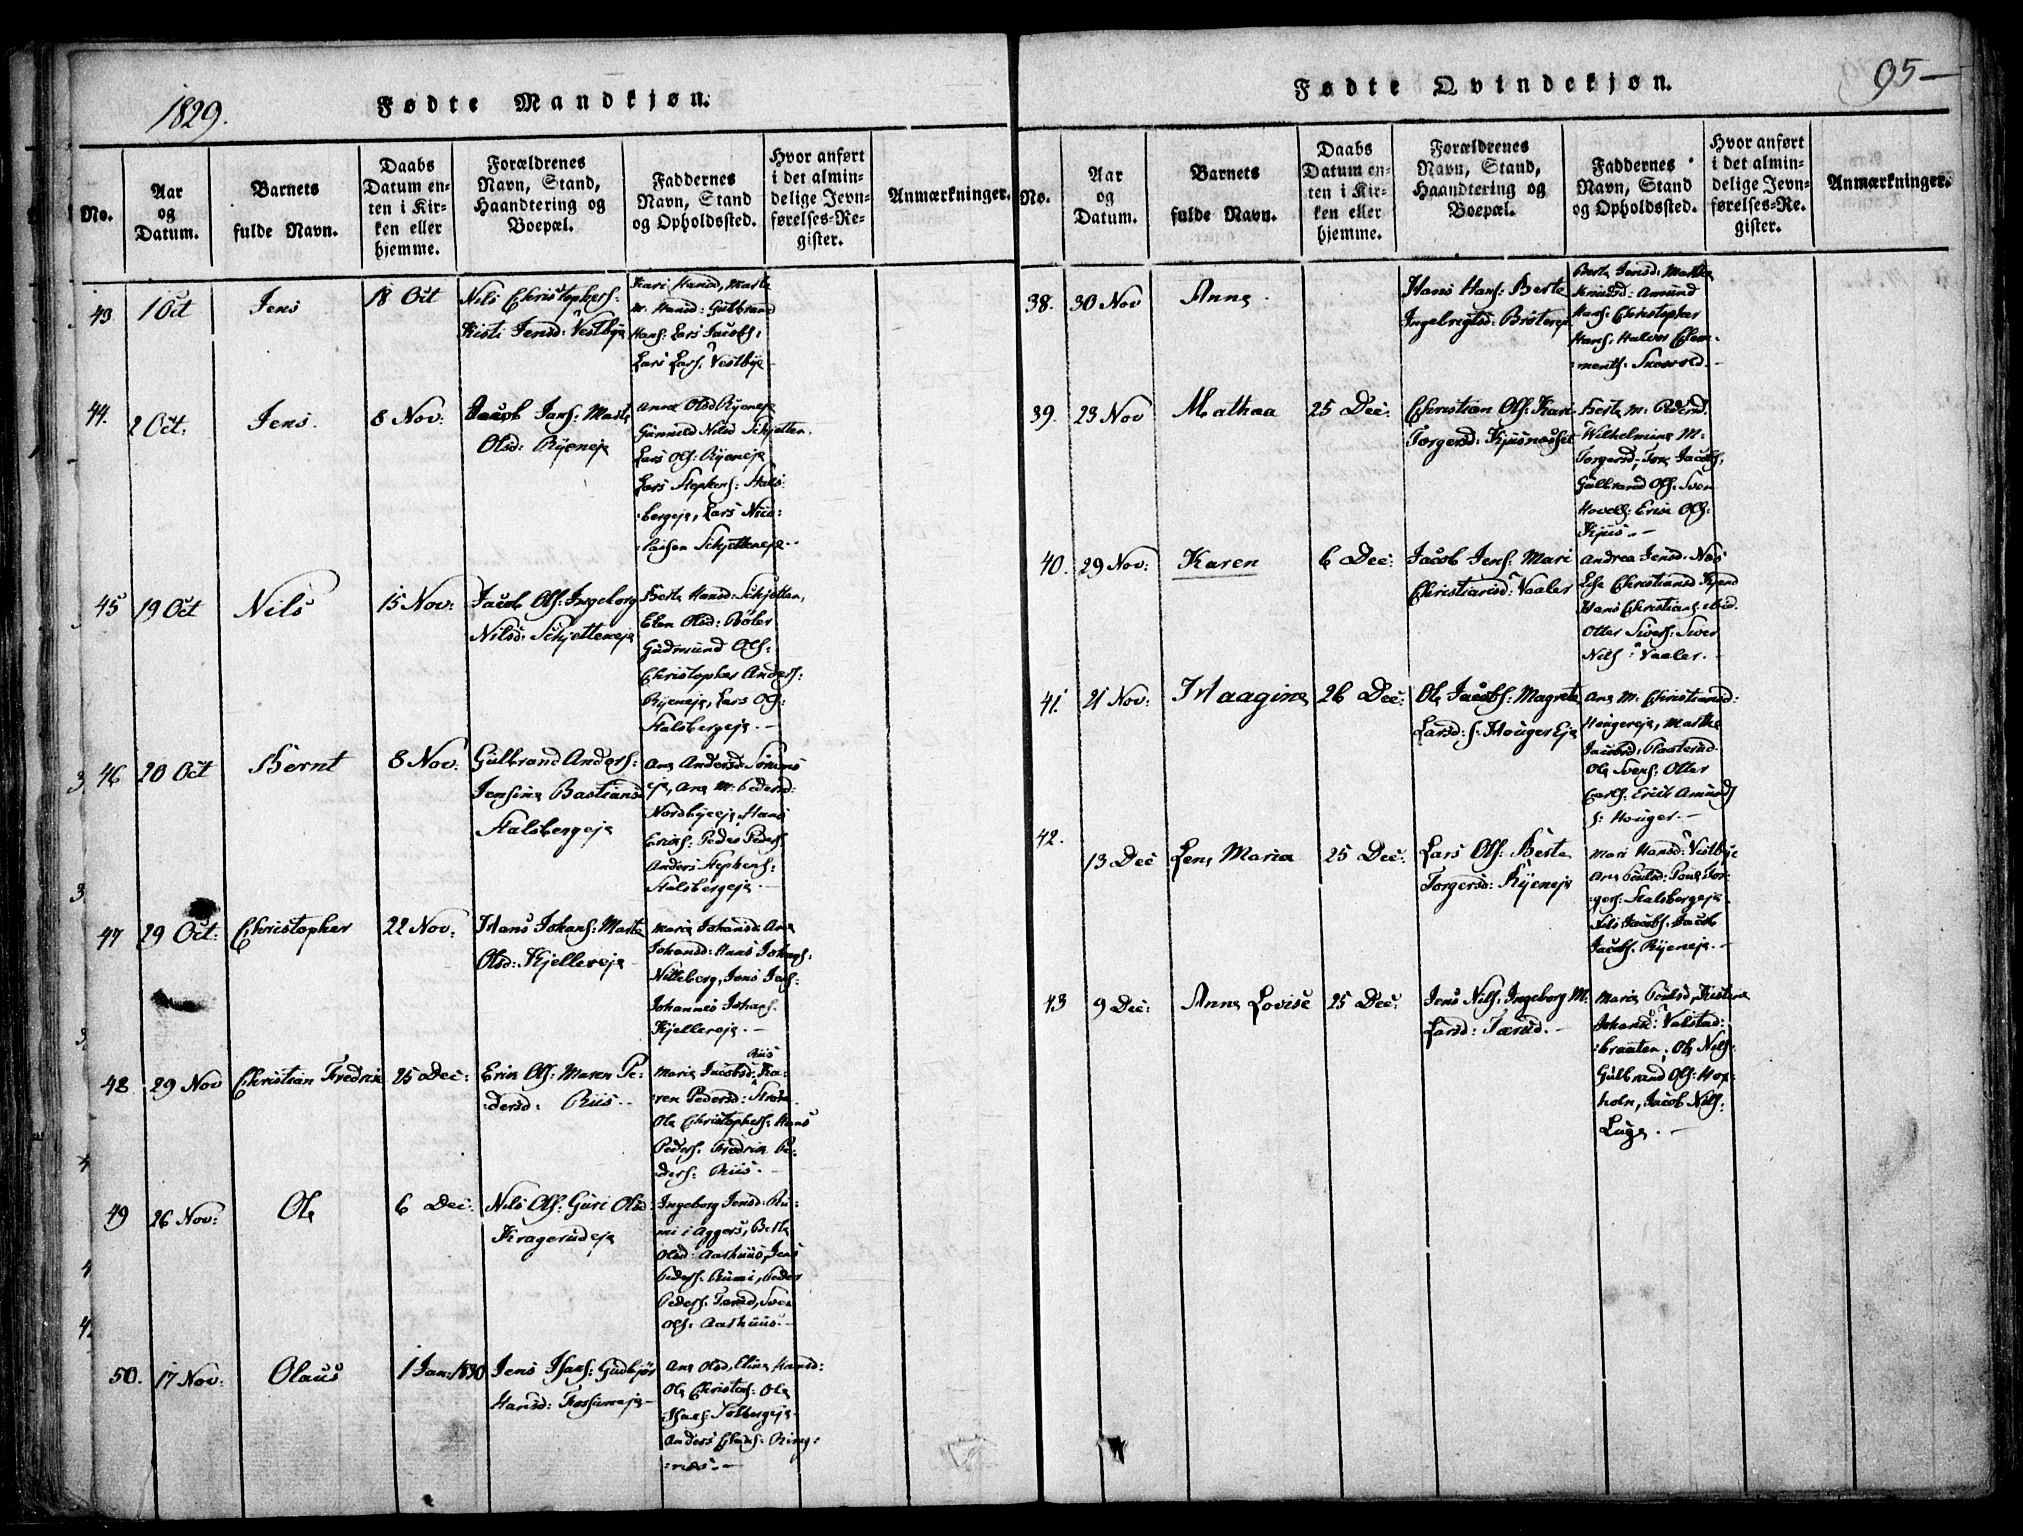 1829.
Fødte Mandkjøn.
No.
Aar
og
Datum.
Barnets
fulde Navn.
Daabs
Datum en-
ten i Kir-
ken eller
hjemme.
Forældrenes
Navn, Stand,
Haandtering og
Boepæl.
Faddernes
Navn, Stand
og Opholdssted.
Hvor anført
i det almin-
delige Jevn-
førelses-Re-
gister.
Anmærkninger.
43
1 Oct
Jens
18 Oct
Nils Christophers:
Kisti Jensd: Vestbye
Kari Hansd, Marte
M. Hansd: Gulbrand
Hans: Lars Jacobs:
Lars Lars: Vestbye
44.
2 Oct.
Jens.
8 Nov:
Jacob Jans: Marte
Olsd: Ryeneje
Anne Olsd Ryeneje
Gunnild Nilsd Schjetten.
Lars Ols: Ryeneje
Lars Stephens: Stals-
bergeje, Lars Nico-
laisen Schjetteneje.
45
19 Oct
Nils
15 Nov:
Jacob Ols: Ingeborg
Nilsd: Schjetteneje
Berte Hansd: Schjetten,
Elen Olsd: Bøler
Gudmund Ols:
Christopher Anders:
Ryeneje, Lars Ols:
Stalsbergeje.
46
20 Oct
Bernt
8 Nov:
Gulbrand Anders:
Jensine Bastiansd
Stalsbergeje
Ane Andersd:
eje, Ane M: Pedersd:
Nordbyeeje, Hans
Ericks: Peder Peders:
Anders Stephens:
Stalsbergeje.
47
29 Oct:
Christopher
22 Nov:
Hans Johans: Marte
Olsd: Kjellereje
Marie Johansd: Ane
Johansd: Hans Johans:
Nitteberg, Jens Jens:
Johannes Johans.
Kjellereje.
48
29 Nov
Christian Fredrik
25 Dec:
Erik Ols: Maren Pe-
dersd: Riis.
Riis
Marie Jacobsd: Ka-
ren Pedersd:
Ole Christophers: Hans
Peders. Fredrik Pe-
ders: Riis.
49
26 Nov:
Ole
6 Dec:
Nils Ols: Guri Olsd:
Kragerudeje
Ingeborg Jensd:
mi i Aggers, Berte
Olsd: Aarhuus, Jens
Peders: Peder
Peders: Sven
Ols: Aarhuus.
50.
17 Nov:
Olaus
1 Jan: 1830
Jens Hans: Gudbjør
Hansd: Fossumeje
Ane Olsd, Eline Hansd:
Ole Christens: Ole
Solbergeje
Anders Ring-
næs.
Fødte Qvindekjøn.
95
No.
Aar
og
Datum.
Barnets
fulde Navn.
Daabs
Datum en-
ten i Kir-
ken eller
hjemme.
Forældrenes
Navn, Stand,
Haandtering og
Boepæl.
Faddernes
Navn, Stand
og Opholdssted.
Hvor anført
i det almin-
delige Jevn-
førelses-Re-
gister.
Anmærkninger.
38.
30 Nov
Anne
Hans Hans: Berte
Ingebregtsd: Bråtereje
Berte Jensd: Marthe
Knudsd: Amund
Hans: Christopher
Hans: Halvor Clem-
ments:
39.
23 Nov
Mathea
25 Dec:
Christian Ols: Kari
Torgersd: Kjusnæsset
Berte M: Pedersd.
Wilhelmine M:
Torgersd; Tore Jacobs,
Gulbrand Ols: Sven
Hovels: Erik Ols:
Kjus.
40.
29 Nov:
Karen
6 Dec:
Jacob Jens: Mari
Christiansd: Vaaler
Andrea Jensd: Næs
Else Christiansd Kjend
Hans Christians: ibid.
Otter Sivers: Siver
Nils: Vaaler.
41.
21 Nov:
Maagine
26 Dec:
Ole Jacobs: Magrete
Larsd: s: Hougereje
Ane M. Christiansd:
Hougereje, Marthe
Jacobsd, Plasterud.
Ole Svens: Otter
Carls: Erik Amunds
s: Houger.
42.
13 Dec
Lene Maria
25 Dec:
Lars Ols: Berte
Torgersd: Ryeneje
Mari Hansd: Vestbye
Ane Poulsd: Poul Tor-
gers: Stalsbergeje.
Nils Jacobs: Jacob
Jacobs. Ryeneje.
43
9 Dec:
Anne Lovise
25 Dec:
Jens Nils: Ingeborg M.
Larsd: Tærud.
Marie Poulsd, Kistene
Johansd: Valstad-
braaten, Ole Nils:
Gulbrand Ols:
holn, Jacob Nils:
Luge.